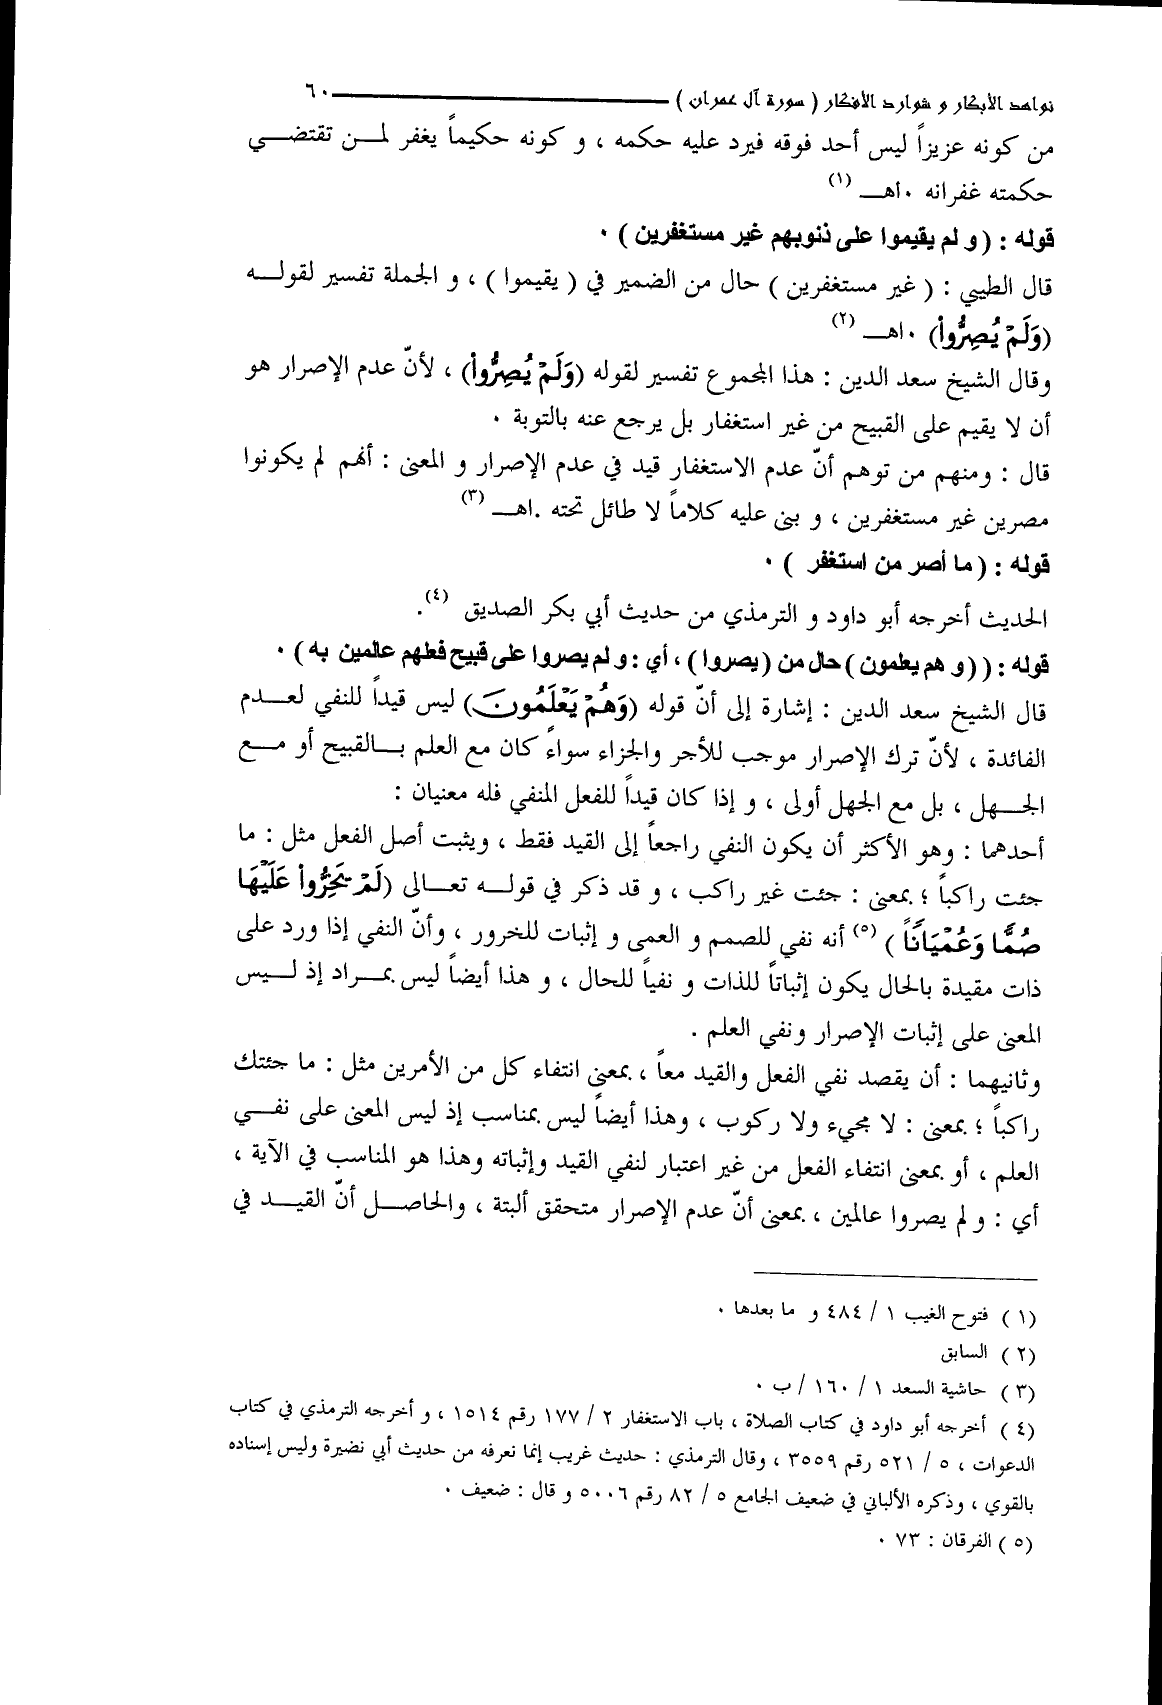 نواهد الأبكار و شوارد الأفكار ( سورة آل عمران ) ٦٠
من كونه عزيزاً ليس أحد فوقه فيرد عليه حكمه ، و كونه حكيماً يغفر لمن تقتضي
حكمته غفرانه .اهـ (١)
قوله : ( و لم يقيموا على ذنوبهم غير مستغفرين ) .
قال الطيبي : ( غير مستغفرين ) حال من الضمير في ( يقيموا ) ، و الجملة تفسير لقوله
(وَلَمْ يُصِرُّواْ) .اهـ (٢)
وقال الشيخ سعد الدين : هذا المجموع تفسير لقوله (وَلَمْ يُصِرُّواْ) ، لأنّ عدم الإصرار هو
أن لا يقيم على القبيح من غير استغفار بل يرجع عنه بالتوبة .
قال : ومنهم من توهم أنّ عدم الاستغفار قيد في عدم الإصرار و المعنى : أنهم لم يكونوا
مصرين غير مستغفرين ، و بنى عليه كلاماً لا طائل تحته .اهـ (٣)
قوله : ( ما أصر من استغفر ) .
الحديث أخرجه أبو داود و الترمذي من حديث أبي بكر الصديق (٤).
قوله : ( ( و هم يعلمون ) حال من ( يصروا ) ، أي : و لم يصروا على قبيح فعلهم عالمين به ) .
قال الشيخ سعد الدين : إشارة إلى أنّ قوله (وَهُمْ يَعْلَمُونَ) ليس قيداً للنفي لعدم
الفائدة ، لأنّ ترك الإصرار موجب للأجر والجزاء سواءً كان مع العلم بالقبيح أو مع
الجهل ، بل مع الجهل أولى ، و إذا كان قيداً للفعل المنفي فله معنيان :
أحدهما : وهو الأكثر أن يكون النفي راجعاً إلى القيد فقط ، ويثبت أصل الفعل مثل : ما
جئت راكباً ؛ بمعنى : جئت غير راكب ، و قد ذكر في قوله تعالى (لَمْ يَخِرُّواْ عَلَيْهَا
صُمًّا وَعُمْيَانًا) (٥) أنه نفي للصمم و العمى و إثبات للخرور ، وأنّ النفي إذا ورد على
ذات مقيدة بالحال يكون إثباتاً للذات و نفياً للحال ، و هذا أيضاً ليس بمراد إذ ليس
المعنى على إثبات الإصرار ونفي العلم .
وثانيهما : أن يقصد نفي الفعل والقيد معاً ، بمعنى انتفاء كل من الأمرين مثل : ما جئتك
راكباً ؛ بمعنى : لا مجيء ولا ركوب ، وهذا أيضاً ليس بمناسب إذ ليس المعنى على نفي
العلم ، أو بمعنى انتفاء الفعل من غير اعتبار لنفي القيد وإثباته وهذا هو المناسب في الآية ،
أي : و لم يصروا عالمين ، بمعنى أنّ عدم الإصرار متحقق ألبتة ، والحاصل أنّ القيد في
(١) فتوح الغيب ١ / ٤٨٤ و ما بعدها .
(٢) السابق
(٣) حاشية السعد ١ / ١٦٠ / ب .
(٤) أخرجه أبو داود في كتاب الصلاة ، باب الاستغفار ٢ / ١٧٧ رقم ١٥١٤ ، و أخرجه الترمذي في كتاب
الدعوات ، ٥ / ٥٢١ رقم ٣٥٥٩ ، وقال الترمذي : حديث غريب إنما نعرفه من حديث أبي نضيرة وليس إسناده
بالقوي ، وذكره الألباني في ضعيف الجامع ٥ / ٨٢ رقم ٥٠٠٦ و قال : ضعيف .
(٥) الفرقان : ٧٣ .